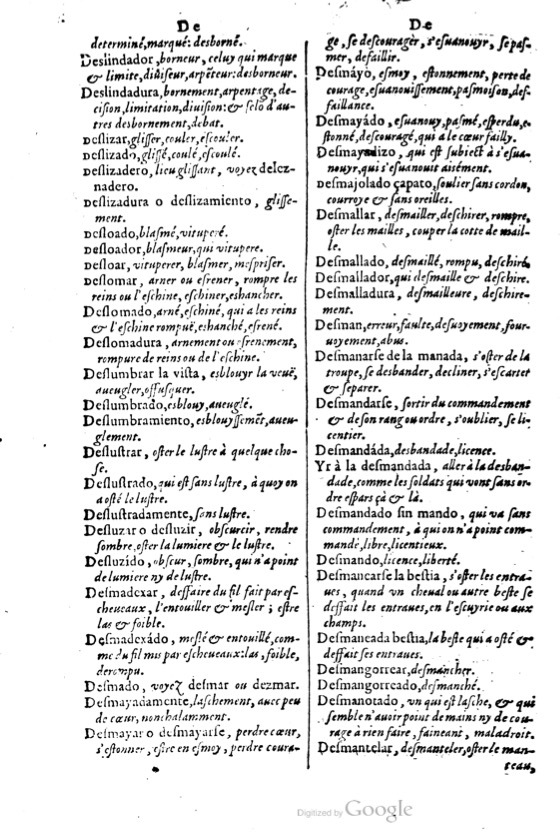 De
determiné,marqué: desborné.
Deslindador, borneur, celuy qui marque
& limite, diuiseur, arpéteur: desborneur.
Deslindadura, bornement, arpentage, de-
cision, limitation, diuision: & selõ d'au-
tres desbornement, debat.
Deslizar, glisser, couler, escouler.
Deslizado, glissé, coulé, escoulé.
Deslizadero, lieu glissant, voyez delez-
nadero.
Deslizadura o deslizamiento, glisse-
ment.
Desloado, blasmé, vituperé.
Desloador, blasmeur, qui vitupere.
Desloar, vituperer, blasmer, mespriser.
Deslomar, arner ou esrener, rompre les
reins ou l'eschine, eschiner, eshancher.
Deslomado, arné, eschiné, qui a les reins
& l'eschine rompuë, eshanché, esrené.
Deslomadura, arnement ou esrenement,
rompure de reins ou de l'eschine.
Deslumbrar la vista, esblouyr la veuë,
aueugler, offusquer.
Deslumbrado, esblouy, aueuglé.
Deslumbramiento, esblouyssemẽt, aueu-
glement.
Deslustrar, oster le lustre à quelque cho-
se.
Deslustrado, qui est sans lustre, à quoy on
a osté le lustre.
Deslustradamente, sans lustre.
Desluzar o desluzir, obscurcir, rendre
sombre, oster la lumiere & le lustre.
Desluzido, obscur, sombre, qui n'a point
de lumiere ny de lustre.
Desmadexar, deffaire du fil fait par es-
cheueaux, l'entouiller & mesler ; estre
las & foible.
Desmadexádo, meslé & entouillé, com-
me du fil mis par escheueaux: las, foible,
derompu.
Desmado, voyez desmar ou dezmar.
Desmayadamente, laschement, auec peu
de cœur, nonchalamment.
Desmayar o desmayarse, perdre cœur,
s'estonner, estre en esmoy, perdre coura-
De
ge, se descourager, s'esuanouyr, se pas-
mer, defaillir.
Desmáyo, esmoy, estonnement, perte de
courage, esuanouissement, pasmoison, def-
faillance.
Desmayádo, esuanouy, pasmé, esperdu, e-
stonné, descouragé, qui a le cœur failly.
Desmayadizo, qui est subiect à s'esua-
nouyr, qui s'esuanouit aisément.
Desmajolado çapato, soulier sans cordon,
courroye & sans oreilles.
Desmallar, desmailler, deschirer, rompre,
oster les mailles, couper la cotte de mail-
le.
Desmallado, desmaillé, rompu, deschiré.
Desmallador, qui desmaille & deschire.
Desmalladura, desmailleure, deschire-
ment.
Desman, erreur, faulte, desuoyement, four-
uoyement, abus.
Desmanarse de la manada, s'oster de la
troupe, se desbander, decliner, s'escartet
& separer.
Desmandarse, sortir du commandement
& de son rang ou ordre, s'oublier, se li-
centier.
Desmandáda, desbandade, licence.
Yr à la desmandada, aller à la desban-
dade, comme les soldats qui vont sans or-
dre espars çà & là.
Desmandado sin mando, qui va sans
commandement, à qui on n'a point com-
mandé, libre, licentieux.
Desmando, licence, liberté.
Desmancarse la bestia, s'oster les entra-
ues, quand vn cheual ou autre beste se
deffait les entraues, en l'escuyrie ou aux
champs.
Desmaneada bestia, la beste qui a osté &
deffait ses entraues.
Desmangorrear, desmancher.
Desmangorreado, desmanché.
Desmanotado, vn qui est lasche, & qui
semble n'auoir point de mains ny de cou-
rage à rien faire, faineant, maladroit.
Desmantelar, desmanteler, oster le man-
teau,
Digitized by Google